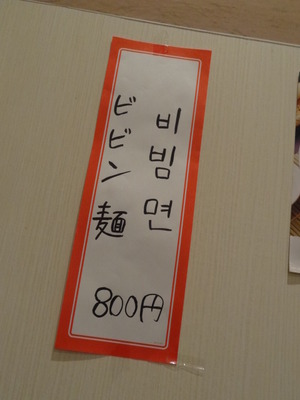 비빔면
ビビン麺
800円